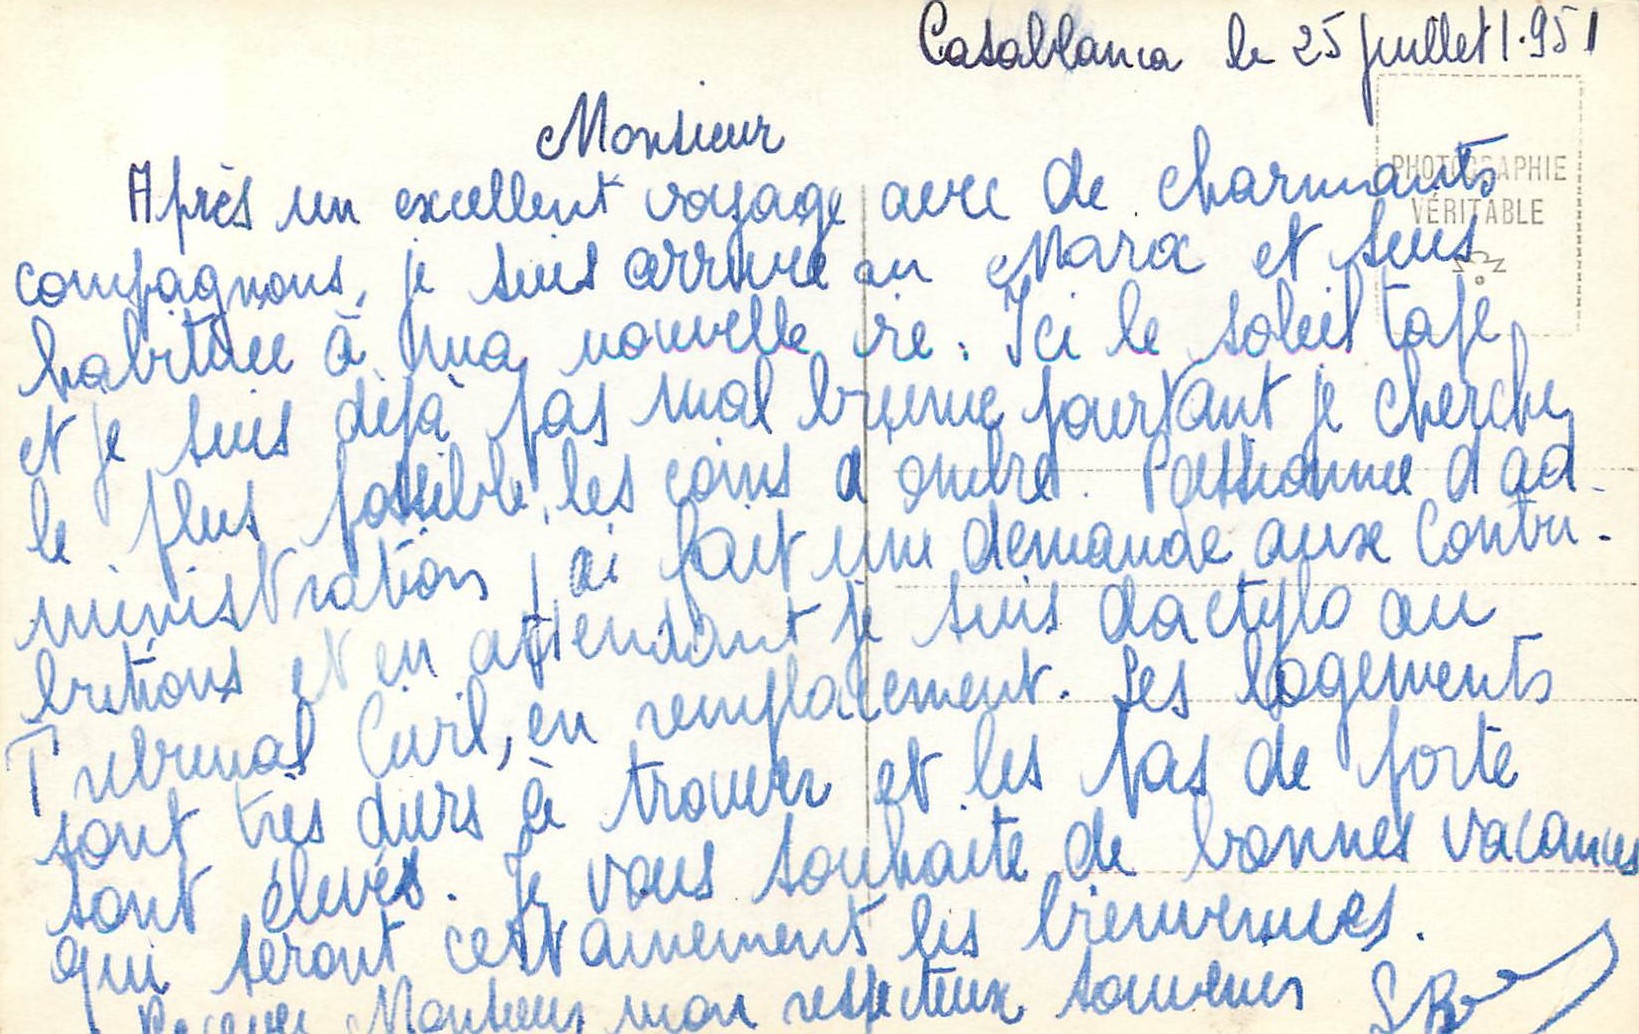 Casablanca le 25 Juillet 1.951
PHOTOGRAPHIE
VÉRITABLE
Monsieur
Après un excellent voyage avec de charmants
compagnons, je suis arrivée au Maroc et suis
habituée à ma nouvelle vie. Ici le soleil tape
et je suis déjà pas mal brunie pourtant je cherche
le plus possible les coins d'ombre. Passionnée d'ad-
ministration j'ai fait une demande aux Contri-
butions et en attendant je suis dactylo au
Tribunal Civil, en remplacement. Les logements
sont très durs à trouver et les pas de porte
sont élevés. Je vous souhaite de bonnes vacances
qui seront certainement les bienvenues.
Recevez Monsieur mon respectueux souvenir